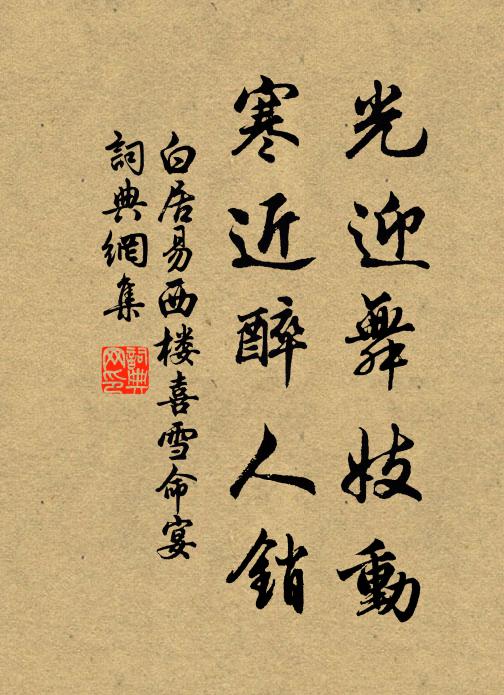 光迎舞妓動
寒近醉人銷
白居易西楼喜雪命宴
詞典網集
詞典網印